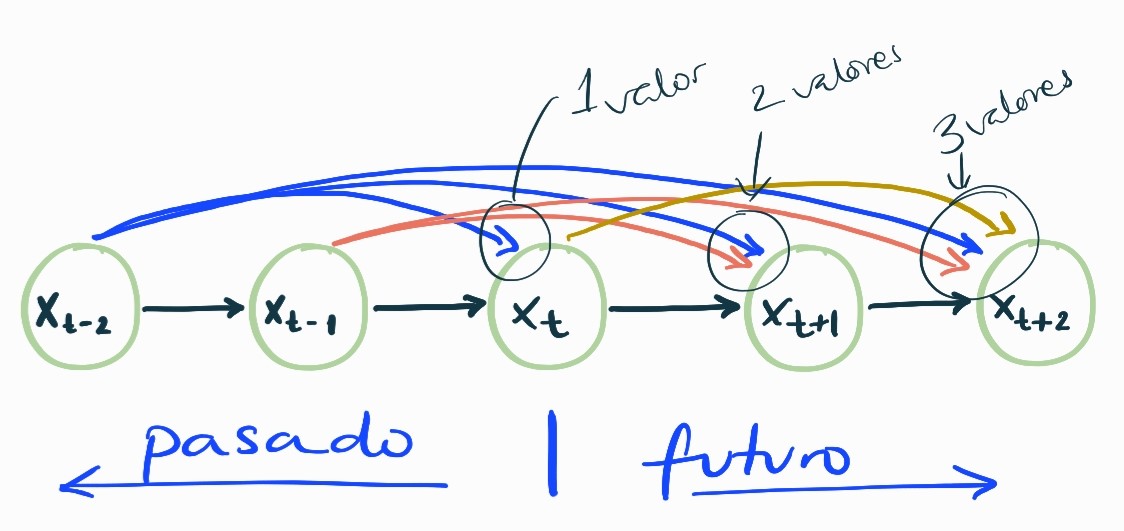 1 valor
2 valores
3 valores
x_{t-2}
x_{t-1}
x_t
x_{t+1}
x_{t+2}
pasado | futuro